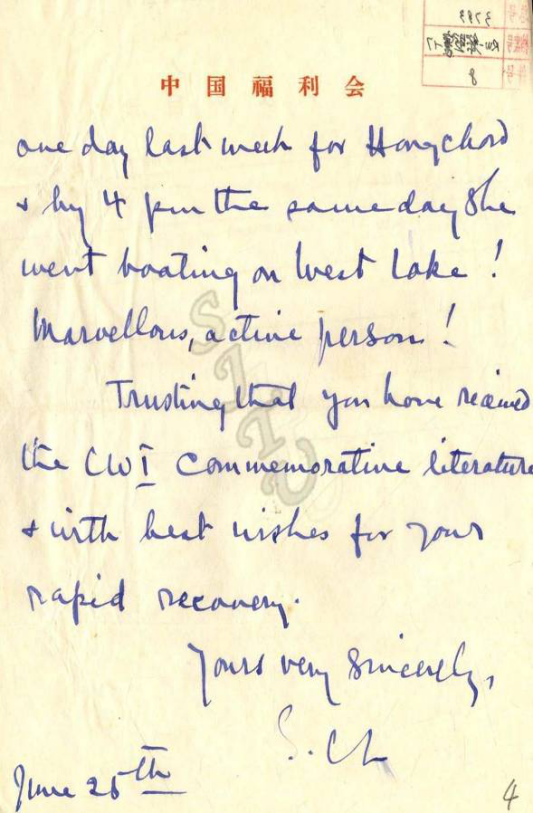 3783
8
中国福利会
one day last week for Hangchow
& by 4 pm the same day she
went boating on West Lake!
Marvellous, active person!
Trusting that you have received
the CWI commemorative literature
& with best wishes for your
rapid recovery.
Yours very sincerely,
June 25th
4
SJTU